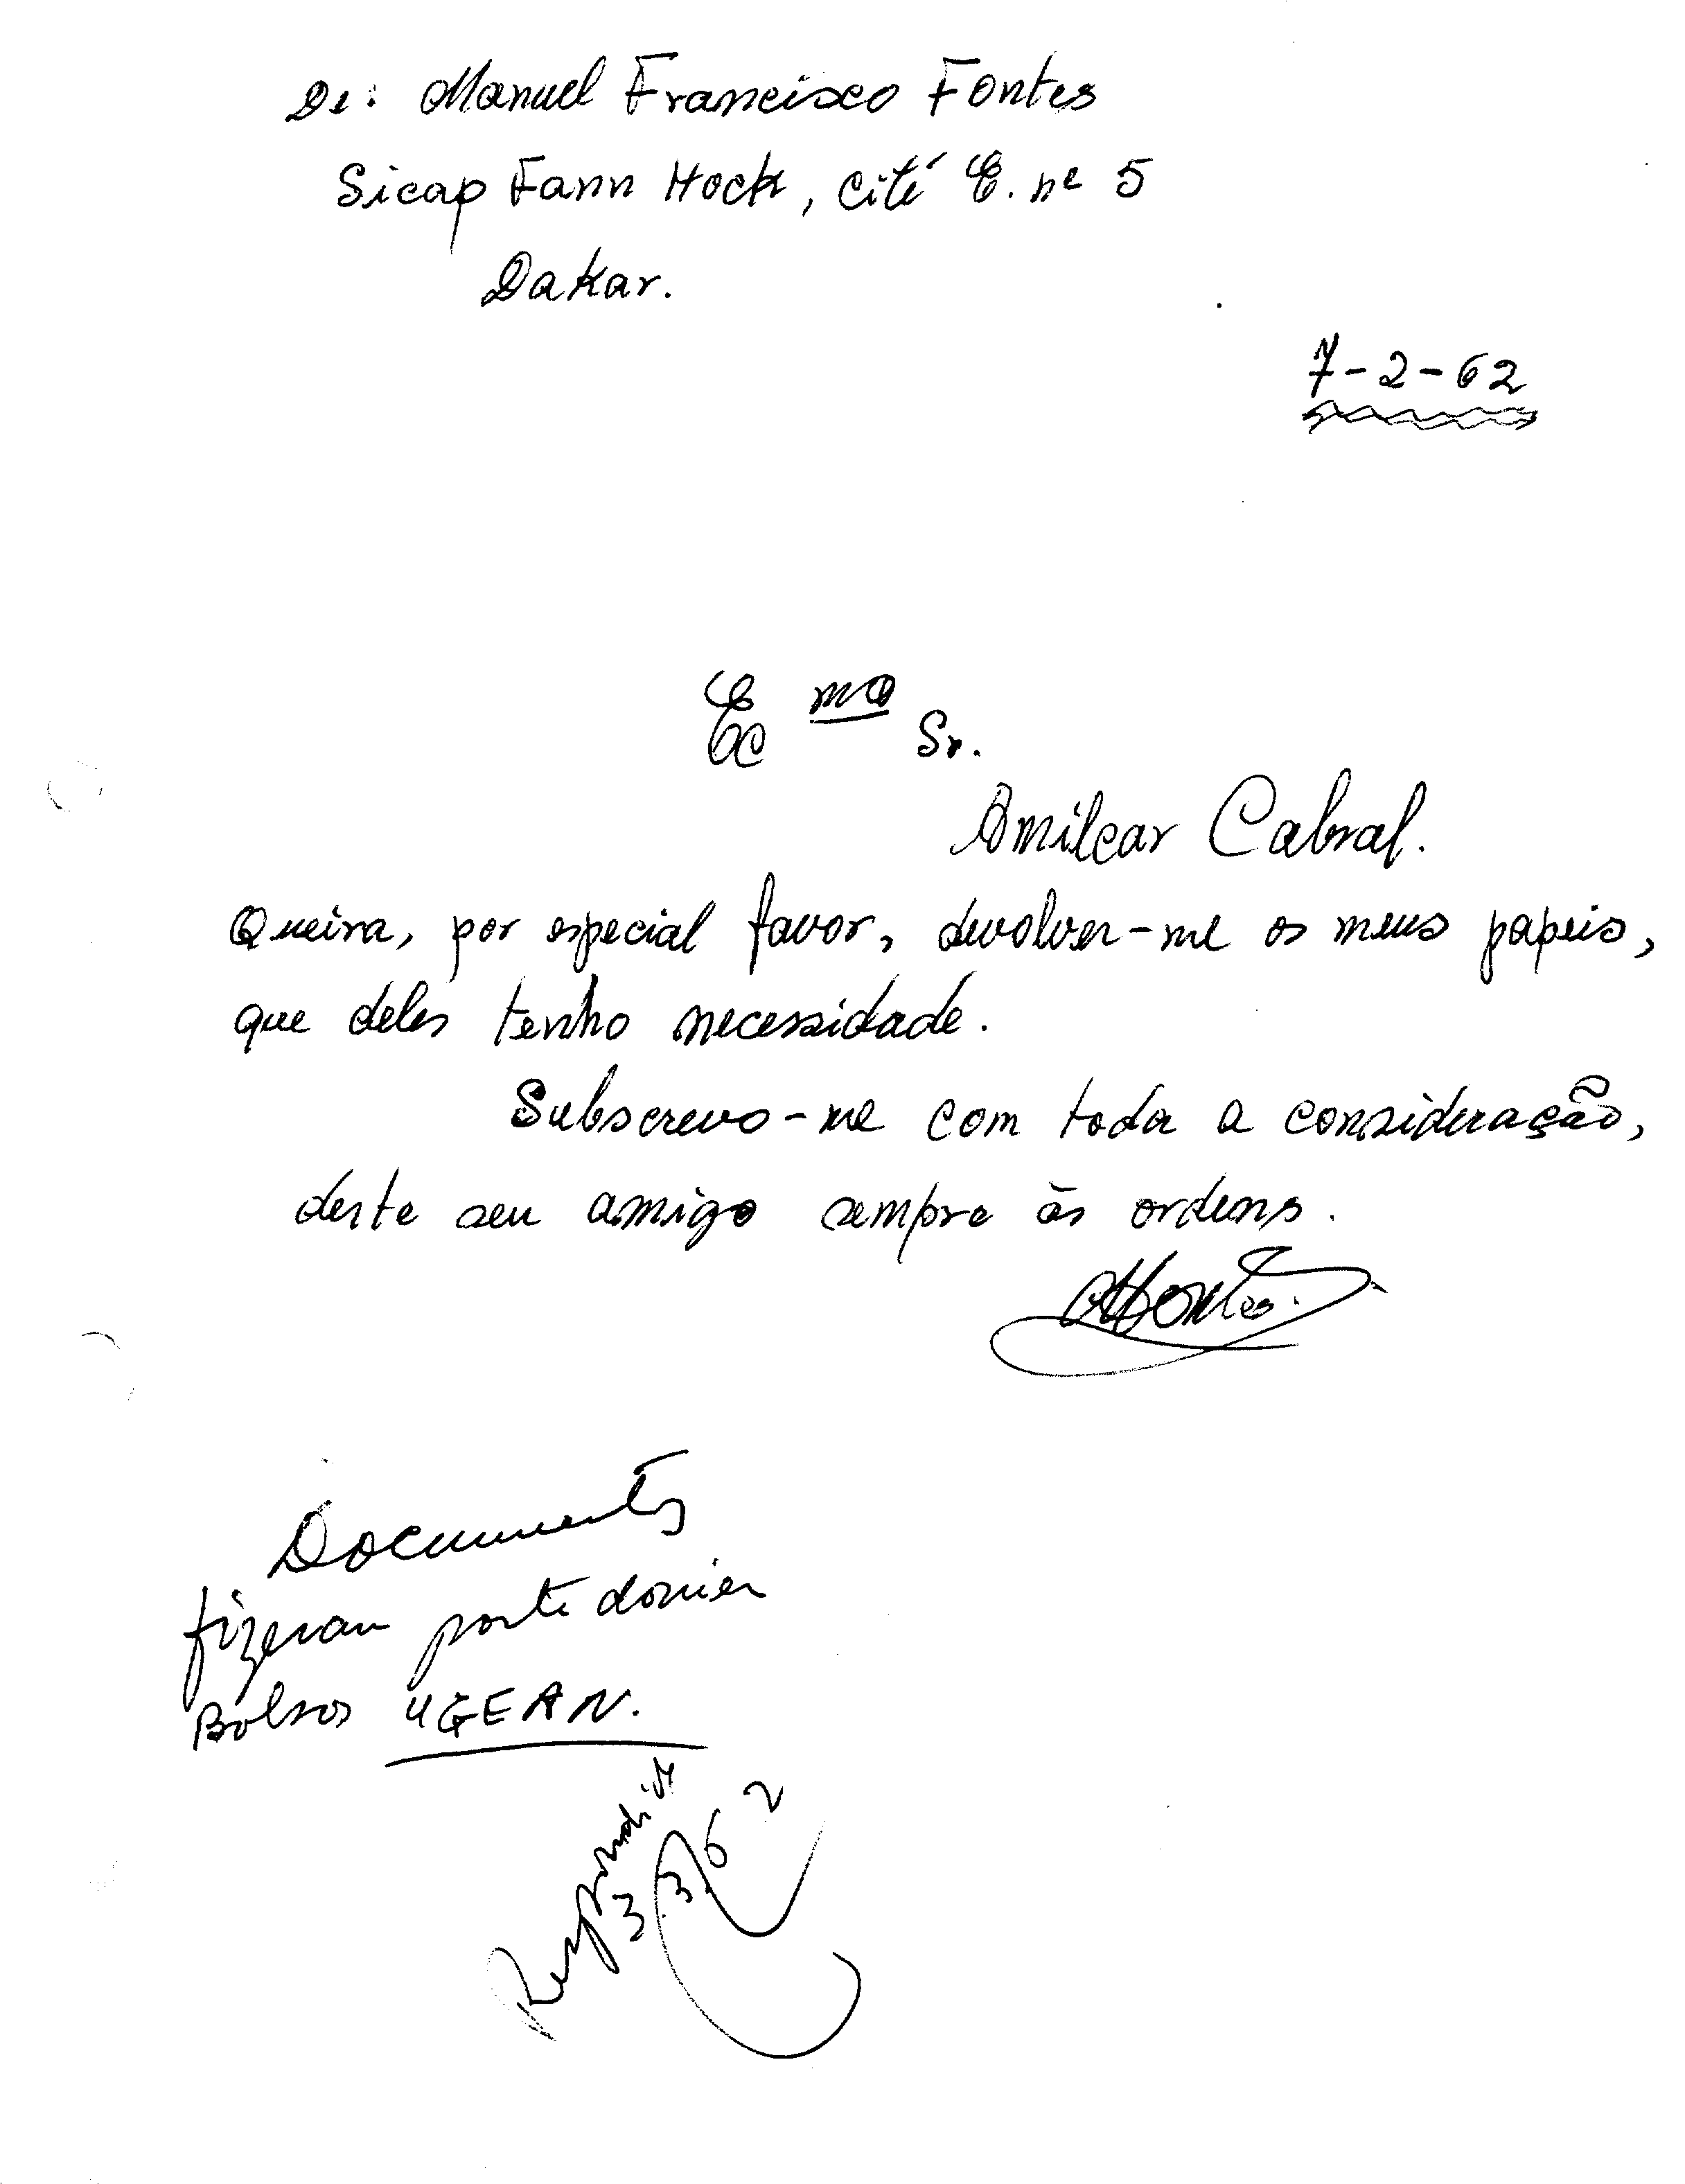 De: Manuel Francisco Fontes
Sicap Fann Hock, Cité E. nº 5
Dakar.
7-2-62
Exmo Sr.
Amilcar Cabral.
Queira, por especial favor, devolver-me os meus papeis,
que deles tenho necessidade.
Subscrevo-me com toda a consideração,
deste seu amigo sempre às ordens.
MFontes.
Documentos
fizeram parte dossier
Bolsas UGEAN.
Respondida
3.3.62